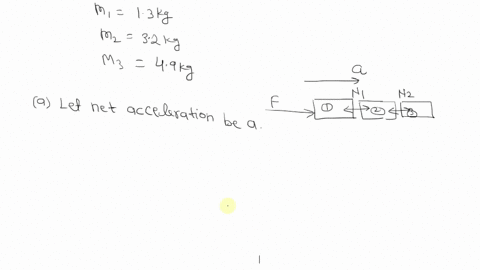 m₁ = 1.3 kg
m₂ = 3.2 kg
M₃ = 4.9 kg
(a) Let net acceleration be a.
a
F
N1
N2
①
②
③